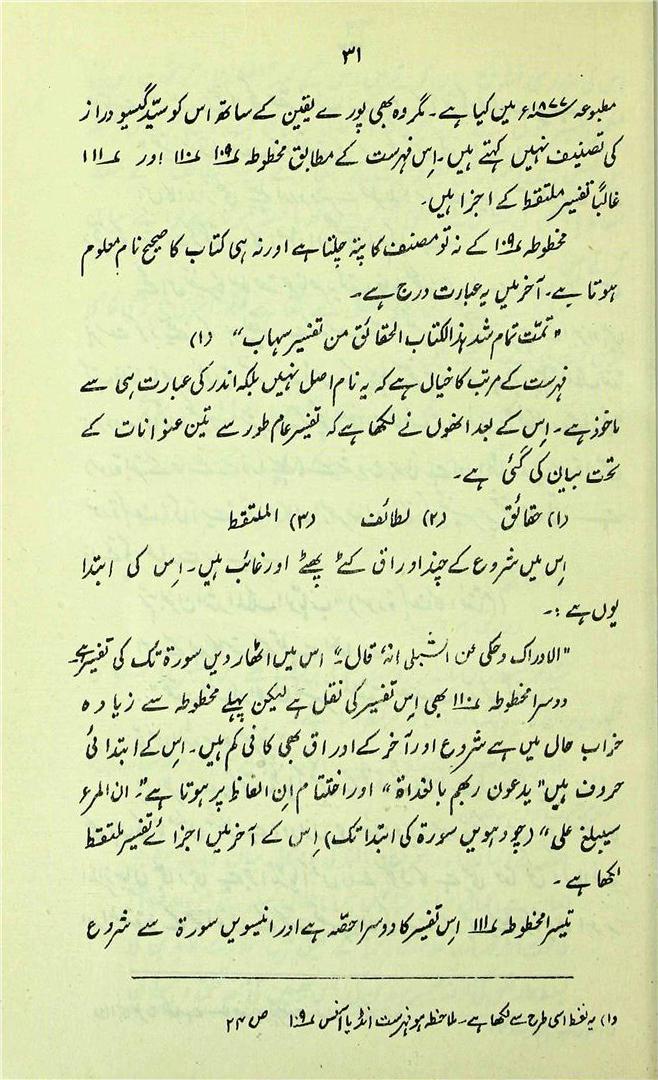 ۳۱
مطبوعہ ۱۸۷۷ء میں کیا ہے۔ مگر وہ بھی پورے یقین کے ساتھ اس کو سیّد گیسو دراز
کی تصنیف نہیں کہتے ہیں۔ اِس فہرست کے مطابق مخطوطہ ۱۰۹ ۱۱۰ اور ۱۱۱
غالباً تفسیر ملتقط کے اجزا ہیں۔
مخطوطہ ۱۰۹ کے نہ تو مصنف کا پتہ چلتا ہے اور نہ ہی کتاب کا صحیح نام معلوم
ہوتا ہے۔ آخر میں یہ عبارت درج ہے۔
"تمّت تمام شد ہذا الکتاب الحقائق من تفسیر سہاب" (۱)
فہرست کے مرتب کا خیال ہے کہ یہ نام اصل نہیں بلکہ اندر کی عبارت ہی سے
ماخوذ ہے۔ اِس کے بعد انھوں نے لکھا ہے کہ تفسیر عام طور سے تین عنوانات کے
تحت بیان کی گئی ہے۔
(۱) حقائق (۲) لطائف (۳) الملتقط
اِس میں شروع کے چند اوراق کٹے پھٹے اور غائب ہیں۔ اِس کی ابتدا
یوں ہے :۔
"الادراک وحکی عن الشبلی انہٗ قال۔" اس میں اٹھارویں سورۃ تک کی تفسیر ہے
دوسرا مخطوطہ ۱۱۰ بھی اِس تفسیر کی نقل ہے لیکن پہلے مخطوطہ سے زیادہ
خراب حال میں ہے شروع اور آخر کے اوراق بھی کافی کم ہیں۔ اِس کے ابتدائی
حروف ہیں "یدعون ربھم بالغداۃ" اور اختتام اِن الفاظ پر ہوتا ہے "ان المرء
سیبلغ علی" (چودہویں سورۃ کی ابتدا تک) اِس کے آخر میں اجزائے تفسیر ملتقط
لکھا ہے۔
تیسرا مخطوطہ ۱۱۱ اِس تفسیر کا دوسرا حصّہ ہے اور انیسویں سورۃ سے شروع
(۱) یہ لفظ اسی طرح سے لکھا ہے۔ ملاحظہ ہو فہرست انڈیا آفس ۱۰۹ ص ۲۴